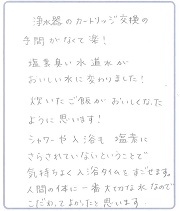 浄水器のカートリッジ交換の
手間がなくて楽!
塩素臭い水道水が
おいしい水に変わりました!
炊いたご飯がおいしくなった
ように思います!
シャワーや入浴も塩素に
さらされていないということで
気持ちよく入浴タイムをすごせます。
人間の体に一番大切な水なので
こだわってよかったと思います。